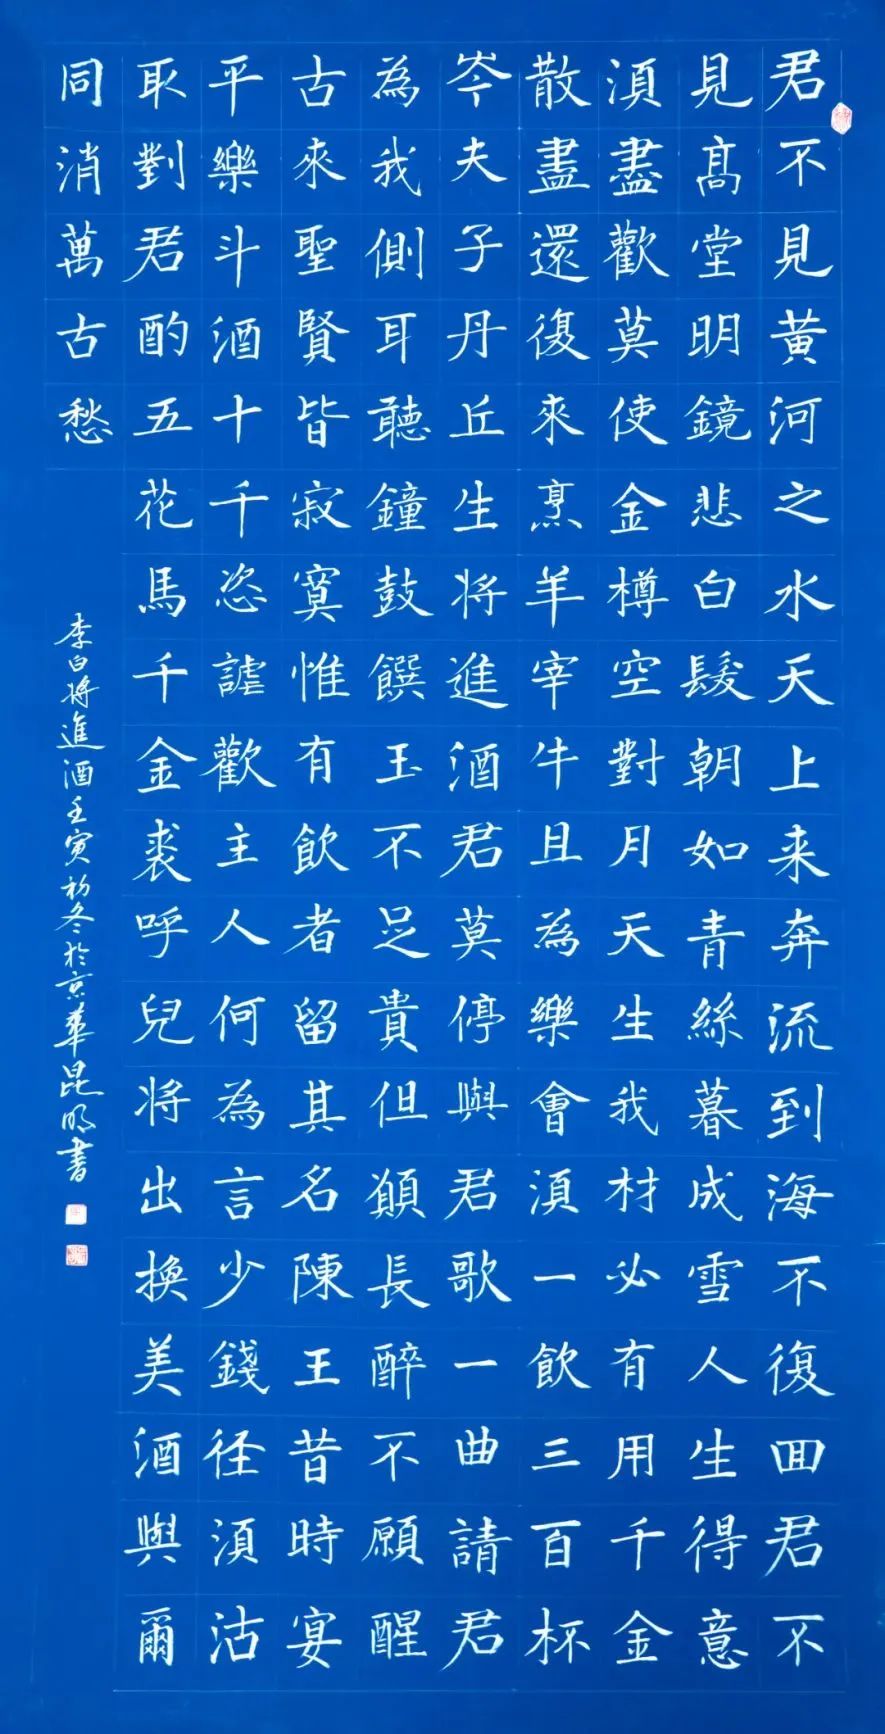 君不見黃河之水天上来奔流到海不復回君不
見高堂明鏡悲白髮朝如青絲暮成雪人生得意
須盡歡莫使金樽空對月天生我材必有用千金
散盡還復來烹羊宰牛且為樂會須一飲三百杯
岑夫子丹丘生将進酒君莫停與君歌一曲請君
為我側耳聽鐘鼓饌玉不足貴但願長醉不願醒
古來聖賢皆寂寞惟有飲者留其名陳王昔時宴
平樂斗酒十千恣謔歡主人何為言少錢徑須沽
取對君酌五花馬千金裘呼兒将出換美酒與爾
同消萬古愁
李白将進酒壬寅初冬於京華昆明書